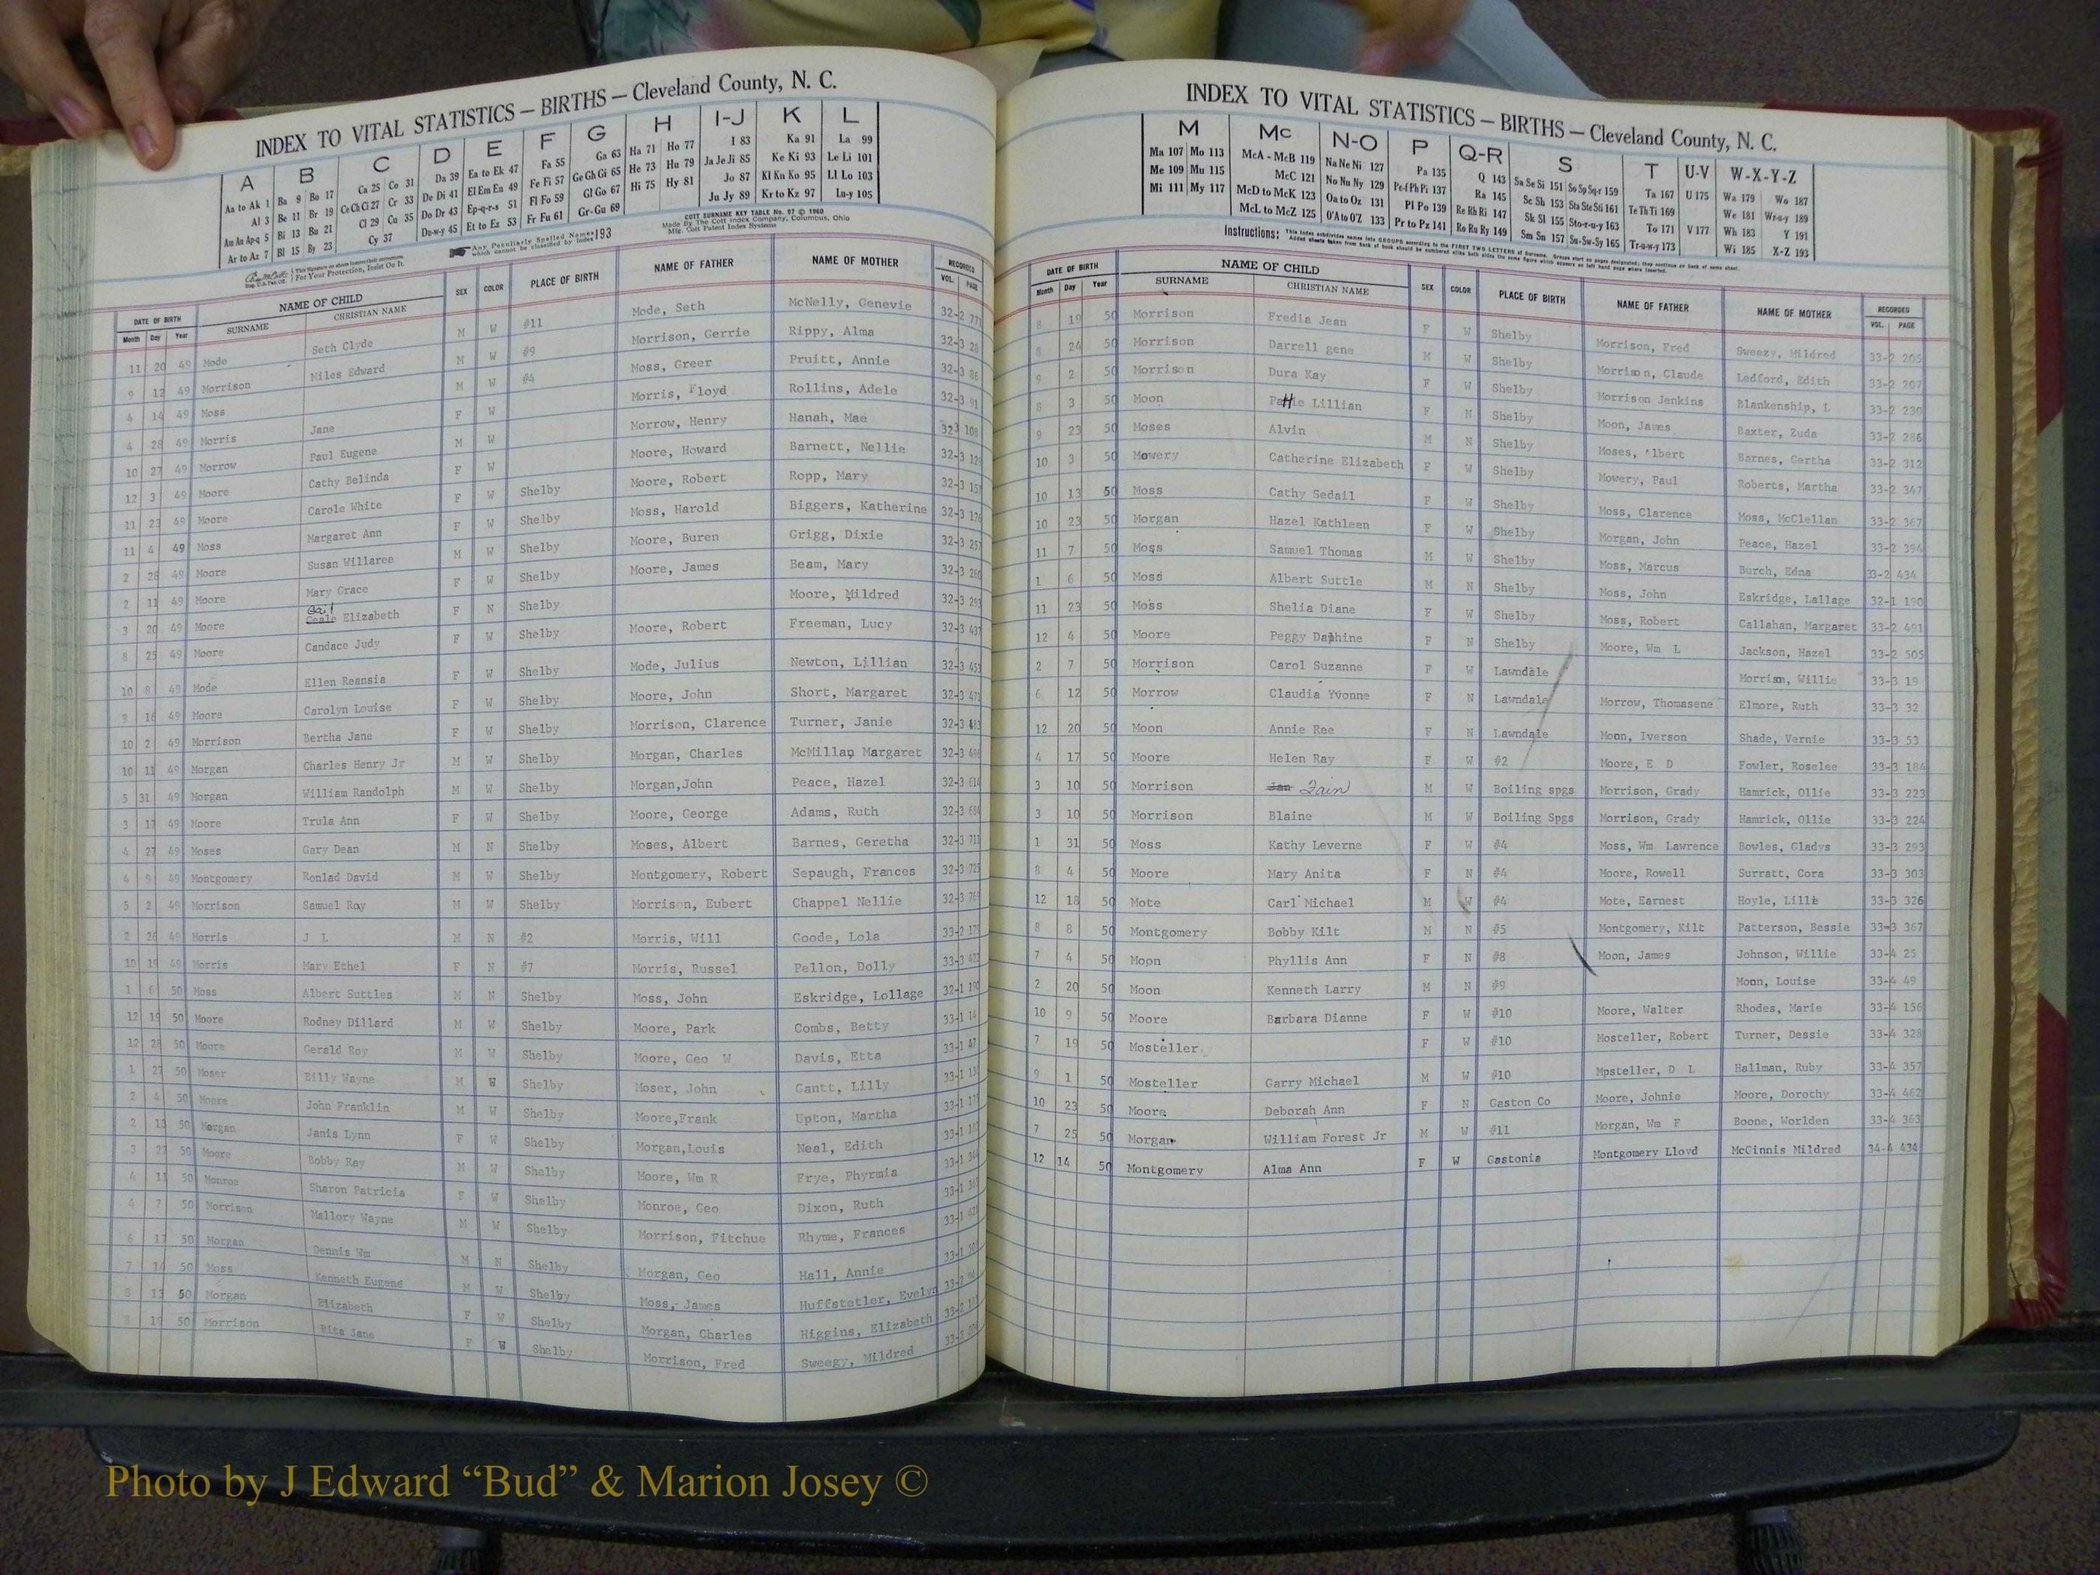 INDEX TO VITAL STATISTICS — BIRTHS — Cleveland County, N. C.
A B C D E F G H I-J K L
Aa to Ak 1 Ba 9 Bo 17 Ca 25 Co 31 Da 39 Ea to Ek 47 Fa 55 Ga 63 Ha 71 Ho 77 I 83 Ka 91 La 99
Al 3 Be 11 Br 19 Ce Ch Ci 27 Cr 33 De Di 41 El Em En 49 Fe Fi 57 Ge Gh Gi 65 He 73 Hu 79 Ja Je Ji 85 Ke Ki 93 Le Li 101
Am An Ap-q 5 Bi 13 Bu 21 Cl 29 Cu 35 Do Dr 43 Ep-q-r-s 51 Fl Fo 59 Gl Go 67 Hi 75 Hy 81 Jo 87 Kl Kn Ko 95 Ll Lo 103
Ar to Az 7 Bl 15 By 23 Cy 37 Du-w-y 45 Et to Ez 53 Fr Fu 61 Gr-Gu 69 Ju Jy 89 Kr to Kz 97 Lu-y 105
COTT SURNAME KEY TABLE No. 97 © 1960
Made By The Cott Index Company, Columbus, Ohio
Mfg. Cott Patent Index Systems
Any Peculiarly Spelled Names which cannot be classified by index 193
For Your Protection, Insist On It.
DATE OF BIRTH NAME OF CHILD SEX COLOR PLACE OF BIRTH NAME OF FATHER NAME OF MOTHER RECORDED
Month Day Year SURNAME CHRISTIAN NAME VOL. PAGE
11 20 49 Mode Seth Clyde M W #11 Mode, Seth McNelly, Genevie 32-2 771
9 12 49 Morrison Miles Edward M W #9 Morrison, Gerrie Rippy, Alma 32-3 28
4 14 49 Moss M W #4 Moss, Greer Pruitt, Annie 32-3 86
4 28 49 Morris Jane F W Morris, Floyd Rollins, Adele 32-3 91
10 27 49 Morrow Paul Eugene M W Morrow, Henry Hanah, Mae 323 108
12 3 49 Moore Cathy Belinda F W Moore, Howard Barnett, Nellie 32-3
11 23 49 Moore Carole White F W Shelby Moore, Robert Ropp, Mary 32-3
11 4 49 Moss Margaret Ann F W Shelby Moss, Harold Biggers, Katherine 32-3 176
2 28 49 Moore Susan Willaree M W Shelby Moore, Buren Grigg, Dixie 32-3 257
2 11 49 Moore Mary Grace F W Shelby Moore, James Beam, Mary 32-3 260
3 20 49 Moore Gail Elizabeth F N Shelby Moore, Mildred 32-3 293
8 25 49 Moore Candace Judy F W Shelby Moore, Robert Freeman, Lucy 32-3 437
10 8 49 Mode Ellen Reansia F W Shelby Mode, Julius Newton, Lillian 32-3 453
9 16 49 Moore Carolyn Louise F W Shelby Moore, John Short, Margaret 32-3 471
10 2 49 Morrison Bertha Jane F W Shelby Morrison, Clarence Turner, Janie 32-3 483
10 11 49 Morgan Charles Henry Jr M W Shelby Morgan, Charles McMillan, Margaret 32-3 496
5 31 49 Morgan William Randolph M W Shelby Morgan,John Peace, Hazel 32-3 614
3 17 49 Moore Trula Ann F W Shelby Moore, George Adams, Ruth 32-3 684
4 27 49 Moses Gary Dean M N Shelby Moses, Albert Barnes, Geretha 32-3 711
4 9 49 Montgomery Ronlad David M W Shelby Montgomery, Robert Sepaugh, Frances 32-3 725
5 2 49 Morrison Samuel Ray M W Shelby Morrison, Eubert Chappel Nellie 32-3 769
2 26 49 Morris J L M N #2 Morris, Will Goode, Lola 33-2 175
10 19 49 Morris Mary Ethel F N #7 Morris, Russel Pellon, Dolly 33-3 422
1 6 50 Moss Albert Suttles M N Shelby Moss, John Eskridge, Lollage 32-1 190
12 19 50 Moore Rodney Dillard M W Shelby Moore, Park Combs, Betty 33-1 14
12 28 50 Moore Gerald Roy M W Shelby Moore, Geo W Davis, Etta 33-1 47
1 27 50 Moser Billy Wayne M W Shelby Moser, John Gantt, Lilly 33-1
2 4 50 Moore John Franklin M W Shelby Moore,Frank Upton, Martha 33-1
2 13 50 Morgan Janis Lynn F W Shelby Morgan,Louis Neal, Edith 33-1
3 27 50 Moore Bobby Ray M W Shelby Moore, Wm R Frye, Phyrmia 33-1
4 11 50 Monroe Sharon Patricia F W Shelby Monroe, Geo Dixon, Ruth 33-1
4 7 50 Morrison Mallory Wayne M W Shelby Morrison, Fitchue Rhyme, Frances 33-1
6 17 50 Morgan Dennis Wm M N Shelby Morgan, Geo Hall, Annie 33-1
7 14 50 Moss Kenneth Eugene M W Shelby Moss, James Huffstetler, Evelyn 33-2
8 13 50 Morgan Elizabeth F W Shelby Morgan, Charles Higgins, Elizabeth 33-2
8 19 50 Morrison Rita Jane F W Shelby Morrison, Fred Sweegy, Mildred 33-2
INDEX TO VITAL STATISTICS — BIRTHS — Cleveland County, N. C.
M Mc N-O P Q-R S T U-V W-X-Y-Z
Ma 107 Mo 113 McA - McB 119 Na Ne Ni 127 Pa 135 Q 143 Sa Se Si 151 So Sp Sq-r 159 Ta 167 U 175 Wa 179 Wo 187
Me 109 Mu 115 McC 121 No Nu Ny 129 Pe-f Ph Pi 137 Ra 145 Sc Sh 153 Sta Ste Sti 161 Te Th Ti 169 We 181 Wr-u-y 189
Mi 111 My 117 McD to McK 123 Oa to Oz 131 Pl Po 139 Re Rh Ri 147 Sk Sl 155 Sto-r-u-y 163 To 171 V 177 Wh 183 Y 191
McL to McZ 125 O'A to O'Z 133 Pr to Pz 141 Ro Ru Ry 149 Sm Sn 157 Su-Sw-Sy 165 Tr-u-w-y 173 Wi 185 X-Z 193
Instructions: This index subdivides names into GROUPS according to the FIRST TWO LETTERS of Surname. Groups start on pages designated; then continue on back of same sheet.
Added sheets taken from back of book should be numbered alike both sides the same figure which appears on left hand page where inserted.
DATE OF BIRTH NAME OF CHILD SEX COLOR PLACE OF BIRTH NAME OF FATHER NAME OF MOTHER RECORDED
Month Day Year SURNAME CHRISTIAN NAME VOL. PAGE
8 19 50 Morrison Fredia Jean F W Shelby Morrison, Fred Sweezy, Mildred 33-2 205
8 24 50 Morrison Darrell gene M W Shelby Morrison, Claude Ledford, Edith 33-2 207
9 2 50 Morrison Dura Kay F W Shelby Morrison Jenkins Blankenship, L 33-2 230
8 3 50 Moon Pattie Lillian F N Shelby Moon, James Baxter, Zuda 33-2 286
9 23 50 Moses Alvin M N Shelby Moses, Albert Barnes, Gertha 33-2 312
10 3 50 Mowery Catherine Elizabeth F W Shelby Mowery, Paul Roberts, Martha 33-2 347
10 13 50 Moss Cathy Sedail F W Shelby Moss, Clarence Moss, McClellan 33-2 367
10 23 50 Morgan Hazel Kathleen F W Shelby Morgan, John Peace, Hazel 33-2 394
11 7 50 Moss Samuel Thomas M W Shelby Moss, Marcus Burch, Edna 33-2 434
1 6 50 Moss Albert Suttle M N Shelby Moss, John Eskridge, Lallage 32-1 190
11 23 50 Moss Shelia Diane F W Shelby Moss, Robert Callahan, Margaret 33-2 491
12 4 50 Moore Peggy Daphine F N Shelby Moore, Wm L Jackson, Hazel 33-2 505
2 7 50 Morrison Carol Suzanne F W Lawndale Morrison, Willie 33-3 19
6 12 50 Morrow Claudia Yvonne F N Lawndale Morrow, Thomasene Elmore, Ruth 33-3 32
12 20 50 Moon Annie Ree F N Lawndale Moon, Iverson Shade, Vernie 33-3 53
4 17 50 Moore Helen Ray F W #2 Moore, E D Fowler, Roselee 33-3 184
3 10 50 Morrison Jan Zain M W Boiling spgs Morrison, Grady Hamrick, Ollie 33-3 223
3 10 50 Morrison Blaine M W Boiling Spgs Morrison, Grady Hamrick, Ollie 33-3 224
1 31 50 Moss Kathy Leverne F W #4 Moss, Wm Lawrence Bowles, Gladys 33-3 293
8 4 50 Moore Mary Anita F N #4 Moore, Rowell Surratt, Cora 33-3 303
12 18 50 Mote Carl Michael M W #4 Mote, Earnest Hoyle, Lille 33-3 326
8 8 50 Montgomery Bobby Kilt M N #5 Montgomery, Kilt Patterson, Bessie 33-3 367
7 4 50 Moon Phyllis Ann F N #8 Moon, James Johnson, Willie 33-4 25
2 20 50 Moon Kenneth Larry M N #9 Moon, Louise 33-4 49
10 9 50 Moore Barbara Dianne F W #10 Moore, Walter Rhodes, Marie 33-4 156
7 19 50 Mosteller F W #10 Mosteller, Robert Turner, Dessie 33-4 328
9 1 50 Mosteller Garry Michael M W #10 Mpsteller, D L Hallman, Ruby 33-4 357
10 23 50 Moore Deborah Ann F N Gaston Co Moore, Johnie Moore, Dorothy 33-4 462
7 25 50 Morgan William Forest Jr M W #11 Morgan, Wm F Boone, Worlden 33-4 363
12 14 50 Montgomery Alma Ann F W Gastonia Montgomery Lloyd McGinnis Mildred 34-4 434
Photo by J Edward “Bud” & Marion Josey ©